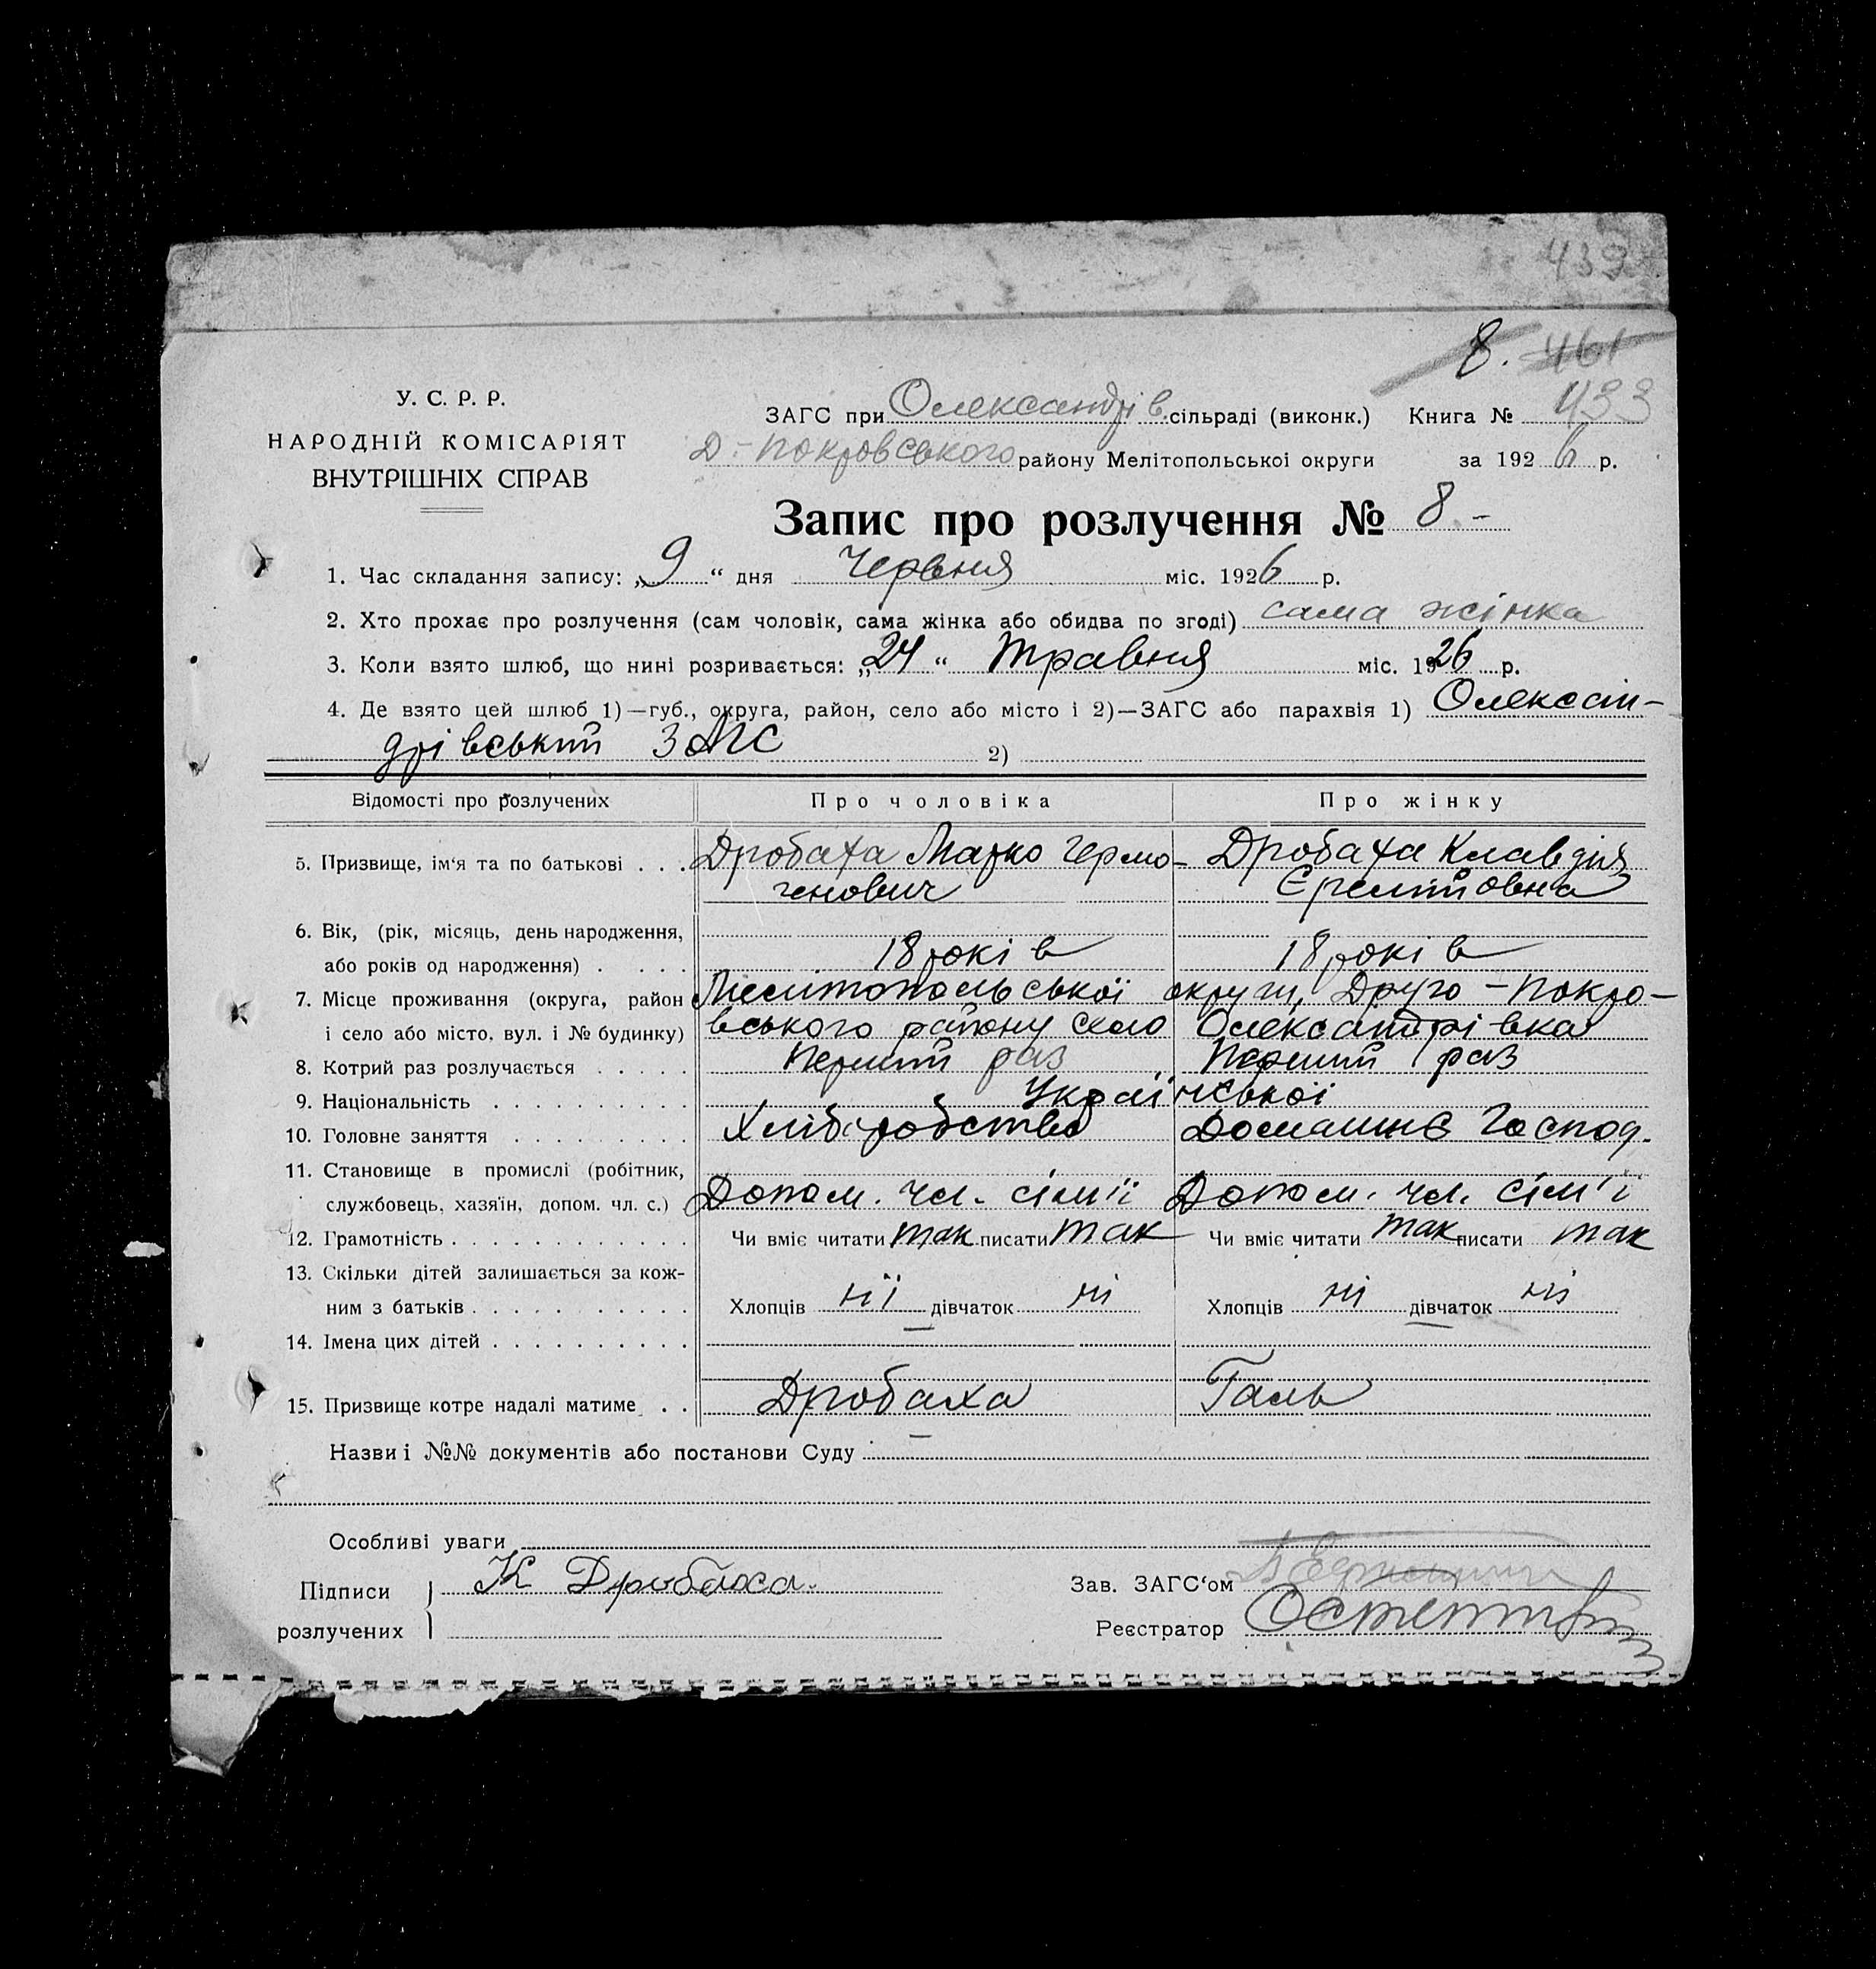 439
8. 461
433
У. С. Р. Р.
НАРОДНІЙ КОМІСАРІЯТ
ВНУТРІШНІХ СПРАВ
ЗАГС при Олександрів. сільраді (виконк.) Книга №
Д.-Покровського району Мелітопольської округи за 1926 р.
Запис про розлучення № 8.-
1. Час складання запису: „9“ дня Червня міс. 1926 р.
2. Хто прохає про розлучення (сам чоловік, сама жінка або обидва по згоді) сама жінка
3. Коли взято шлюб, що нині розривається: „24“ Травня міс. 1926 р.
4. Де взято цей шлюб 1)—губ., округа, район, село або місто і 2)—ЗАГС або парахвія 1) Олексан-
дрівський ЗАГС 2)
Відомості про розлучених Про чоловіка Про жінку
5. Призвище, ім‘я та по батькові . . . Дробаха Марко Гермо- Дробаха Клавдия
генович
6. Вік, (рік, місяць, день народження,
або років од народження) . . . . 18 років 18 років
7. Місце проживання (округа, район Мелітопольської округи, Друго-Покро-
і село або місто, вул. і № будинку) вського району село Олександрівка
8. Котрий раз розлучається . . . . . Перший раз Перший раз
9. Національність . . . . . . . . . . Української
10. Головне заняття . . . . . . . . . Хліборобство Домашнє Господ.
11. Становище в промислі (робітник,
службовець, хазяїн, допом. чл. с.) Допом. чл. сім'ї Допом. чл. сім'ї
12. Грамотність . . . . . . . . . . . . Чи вміє читати так писати так Чи вміє читати так писати так
13. Скільки дітей залишається за кож-
ним з батьків . . . . . . . . . . . Хлопців ні дівчаток ні Хлопців ні дівчаток ні
14. Імена цих дітей . . . . . . . . . .
15. Призвище котре надалі матиме . . Дробаха Галь
Назви і №№ документів або постанови Суду
Особливі уваги
Підписи К Дробаха. Зав. ЗАГС‘ом
розлучених Реєстратор